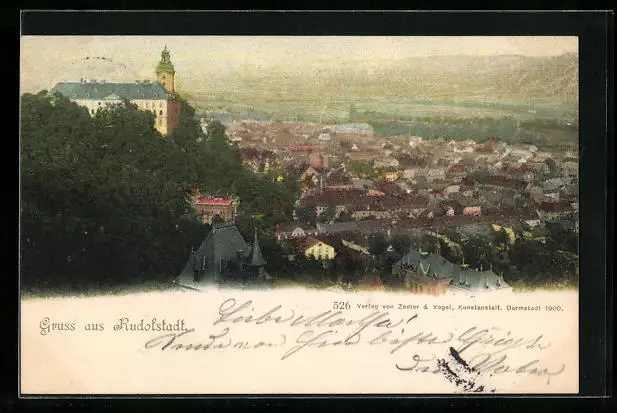 526 Verlag von Zedler & Vogel, Kunstanstalt, Darmstadt 1900.
Gruss aus Rudolstadt.
Liebe
von hier beste Grüsse